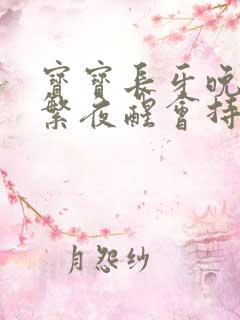 寶寶長牙晚
繁夜醒會持
月怨紗